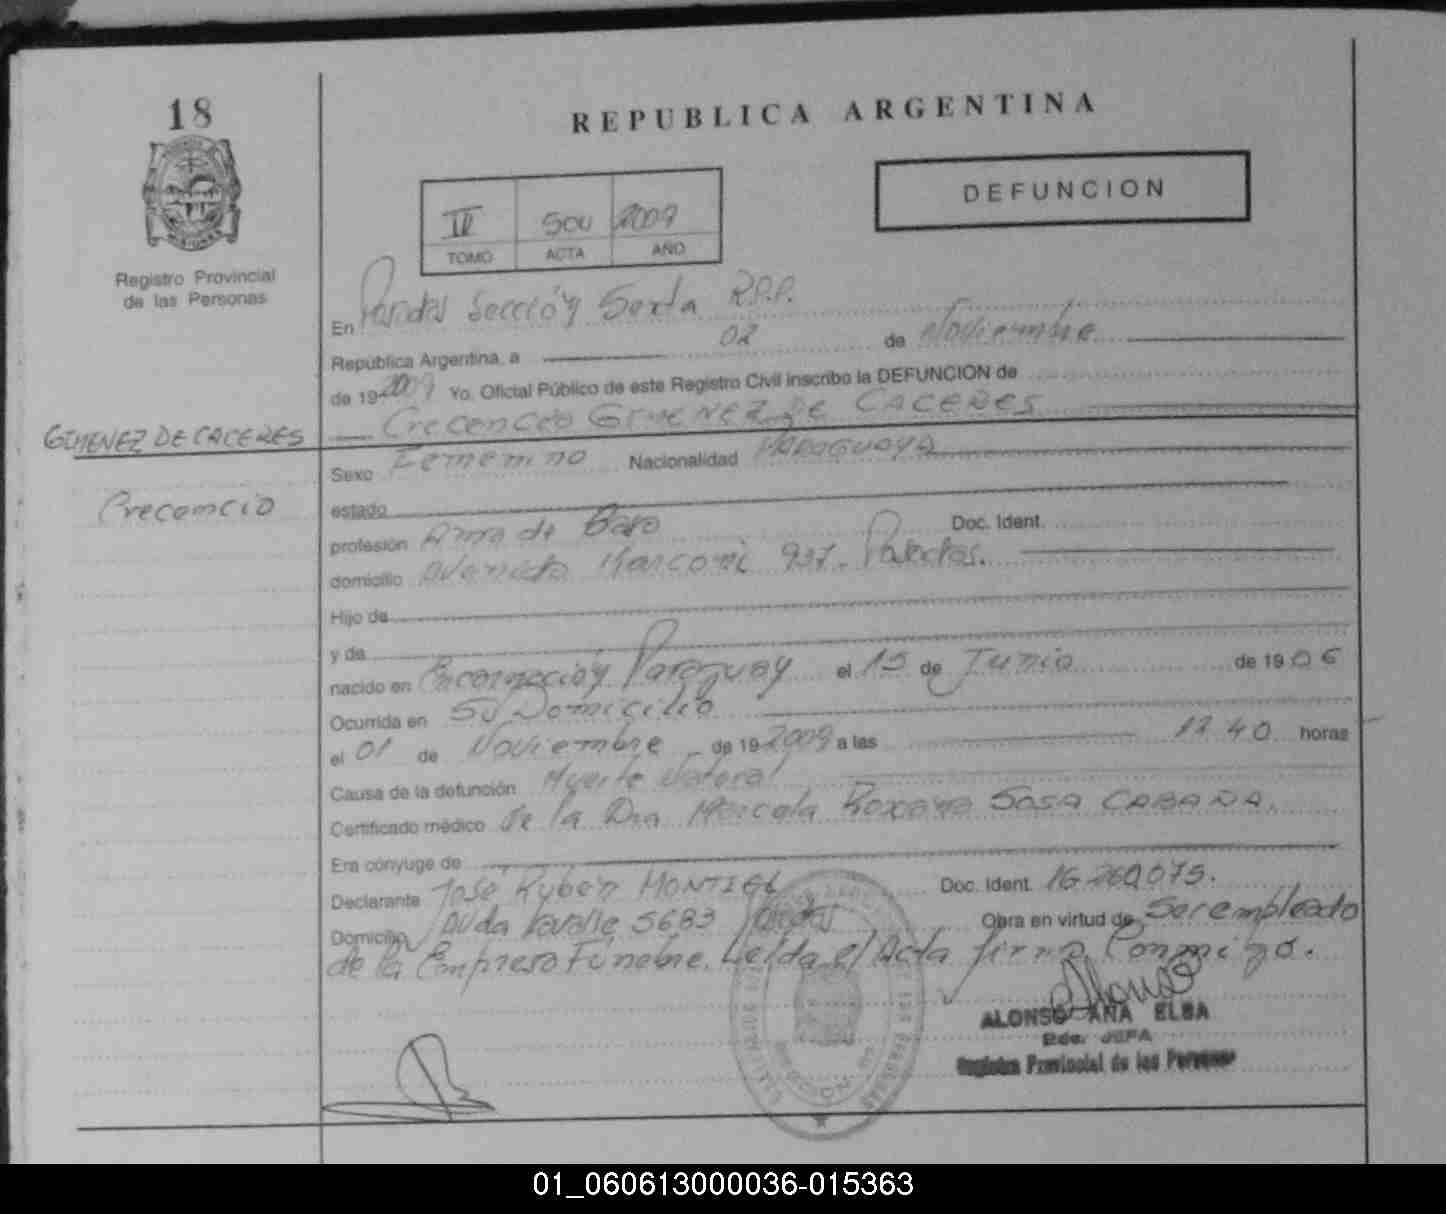 18
REPUBLICA ARGENTINA
DEFUNCION
II 504 2009
TOMO ACTA AÑO
Registro Provincial
de las Personas
En Posadas Sección Sexta R.P.P.
República Argentina, a 02 de Noviembre
de 19 2009 Yo, Oficial Público de este Registro Civil inscribo la DEFUNCION de
Crecencio GIMENEZ DE CACERES
GIMENEZ DE CACERES
Crecencio
Sexo Femenino Nacionalidad PARAGUAYA
estado
profesión Ama de Doc. Ident.
domicilio Marconi 937.
Hijo de
y de
nacido en Encarnación Paraguay el 15 de Junio de 19 06
Ocurrida en Su Domicilio
el 01 de Noviembre de 19 2009 a las 40 horas
Causa de la defunción Muerte Natural
Certificado médico de la Dra SOSA CABAÑA.
Era cónyuge de
Declarante José Rubén MONTIEL Doc. Ident. 16.260.075.
Domicilio Avda Lavalle 5683 Obra en virtud de Ser empleado
de la Empresa Fúnebre. Leída el Acta firma Conmigo.
ALONSO ANA ELBA
JEFA
Registro Provincial de las Personas
01_060613000036-015363